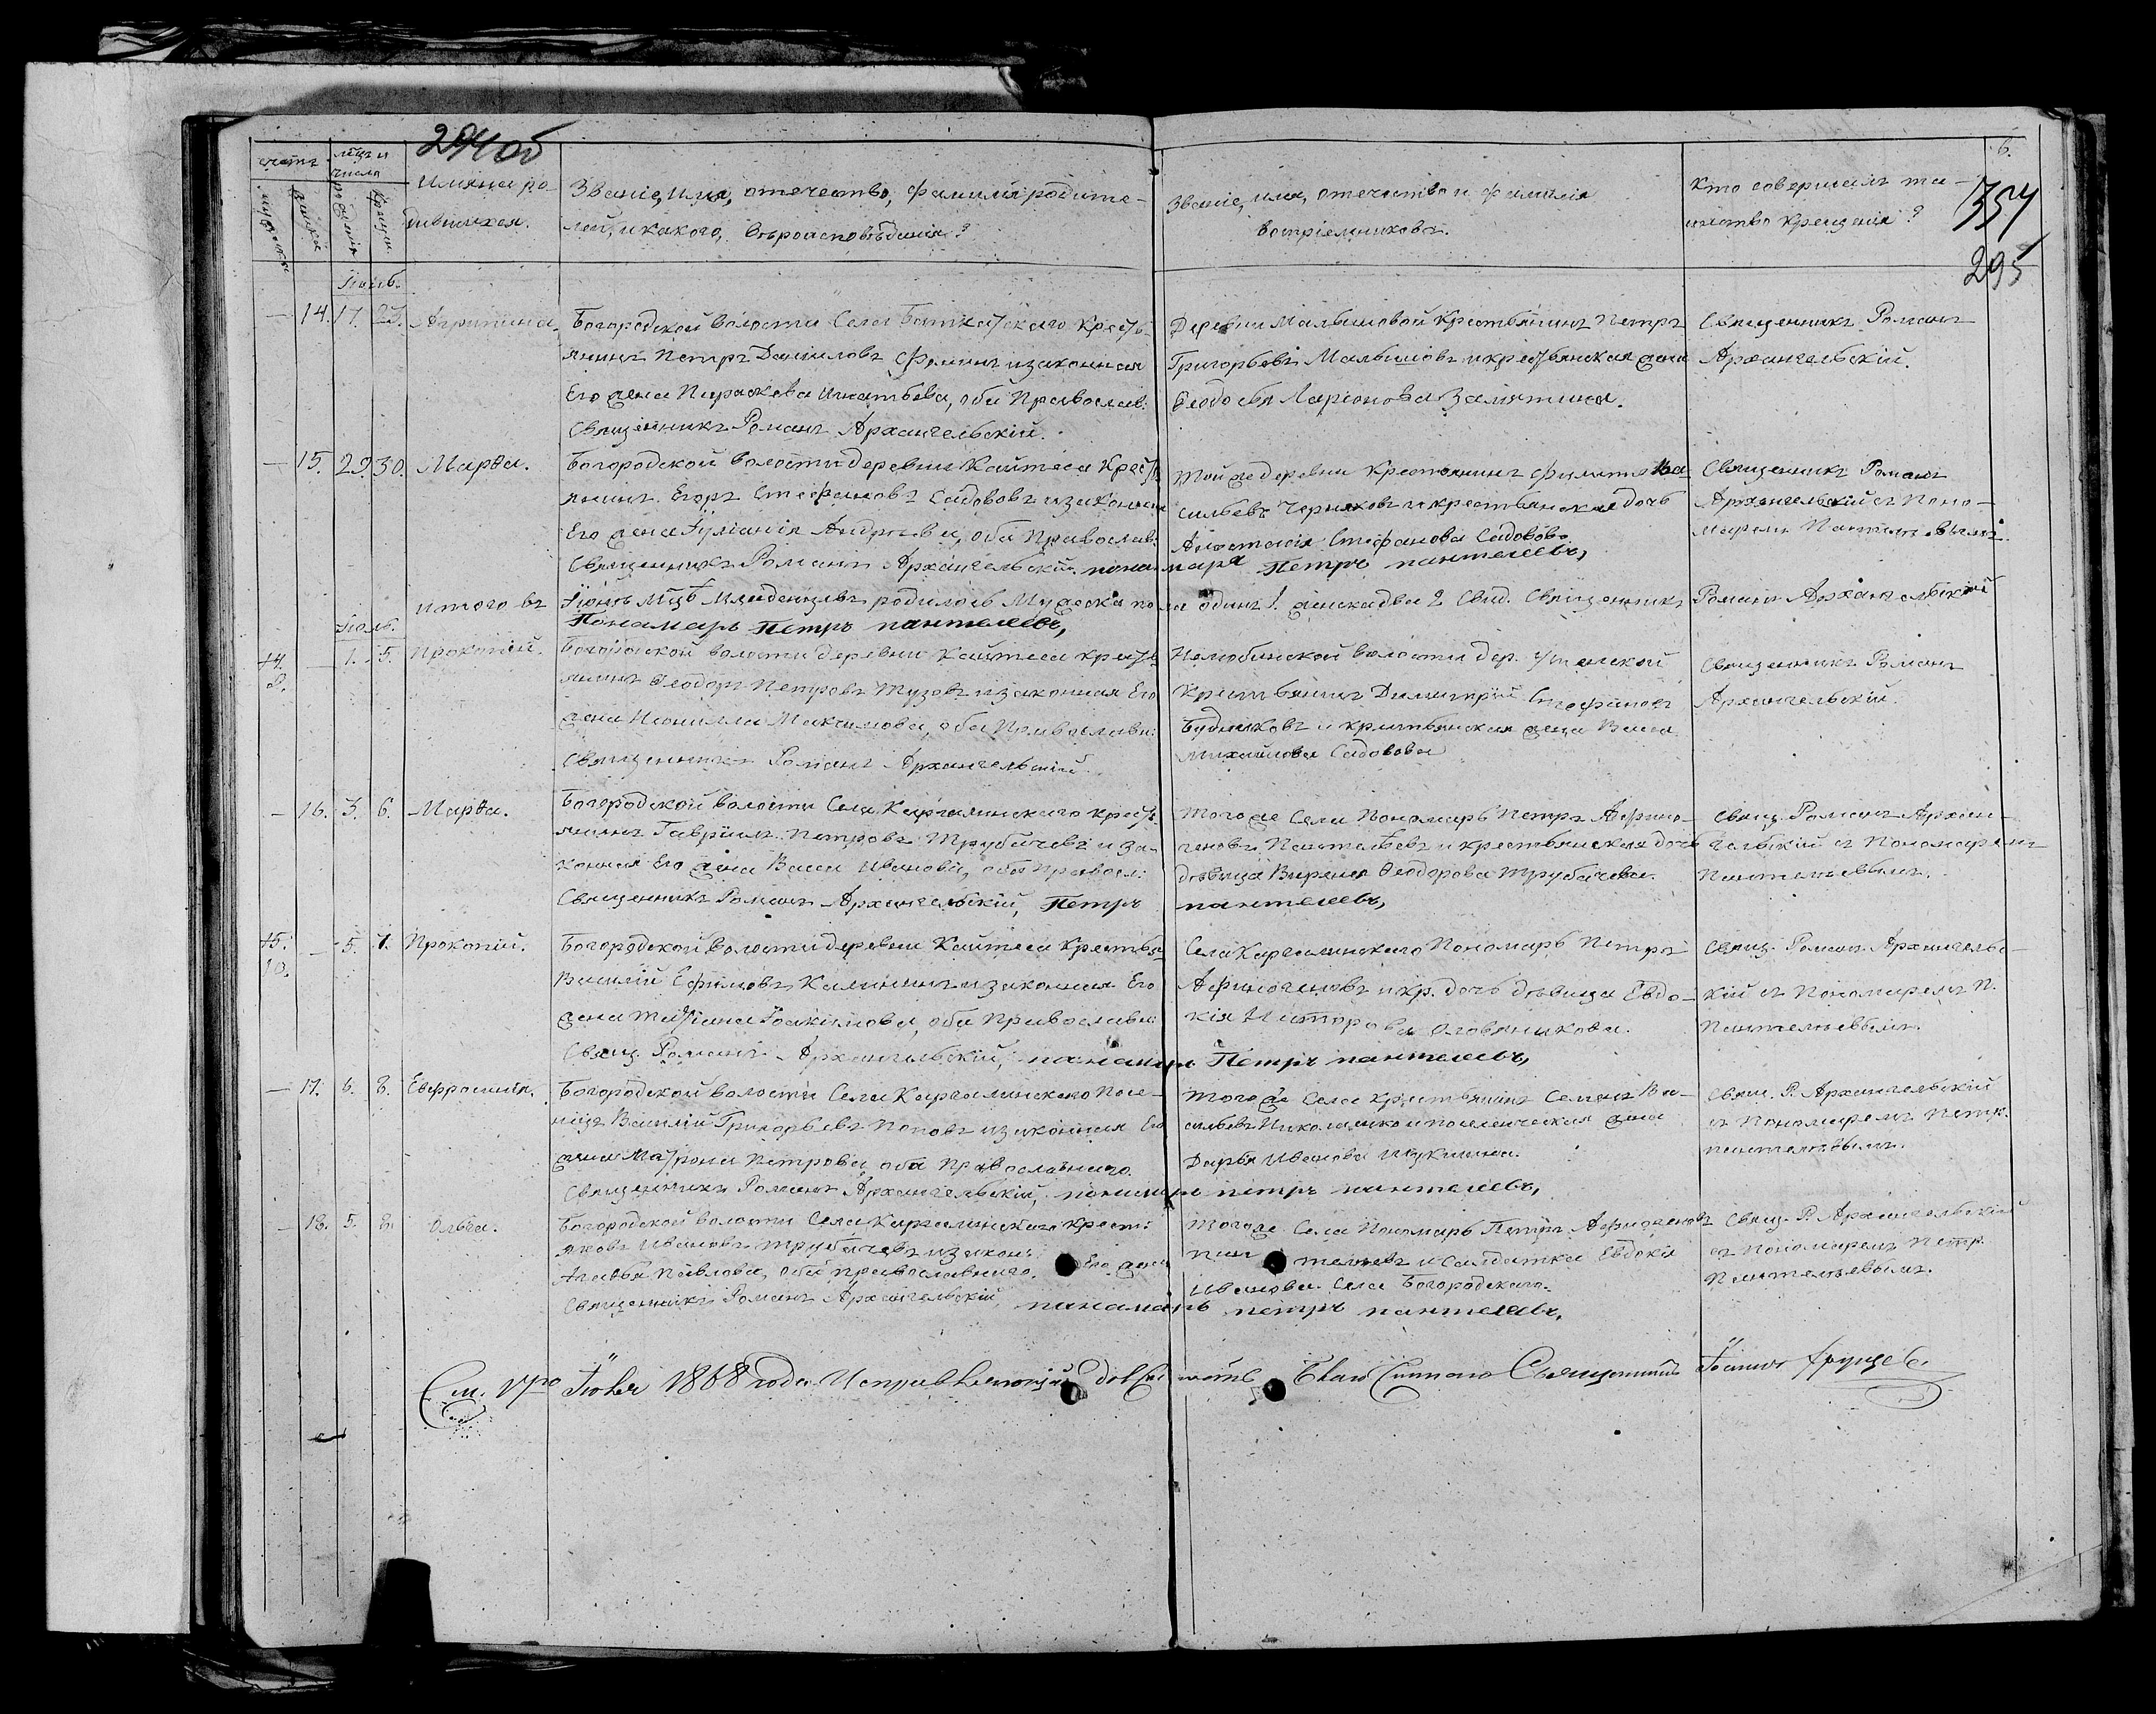 294 об
6.
354
295
счетъ мѣсяцъ и числа
Имена ро-
дившихся.
Званіе, имя, отечество, фамилія родите-
лей, и какого, вѣроисповѣданія?
Званіе, имя, отечество и фамилія
воспріемниковъ.
Кто совершалъ та-
инство крещенія?
Іюнь.
— 14. 17. 23. Агрипина,
Богородской волости Села Баткатскаго Крест
янинъ Петръ Даниловъ Фоминъ и законная
Его жена Параскева Игнатьева, оба Православ:
Священникъ Романъ Архангельскій.
Деревни Малышовой Крестьянинъ Петръ
Григорьевъ Малышовъ и крестьянская жена
Ѳеодосья Ларіонова Замятина.
Священникъ Романъ
Архангельскій.
— 15. 29. 30. Марѳа.
Богородской волости деревни Кайтеса Крест
янинъ Егоръ Стефановъ Садововъ и законная
Его жена Іуліанія Андреева, оба Православ:
Священникъ Романъ Архангельскій. понамаря Петръ пантелеевъ,
Той же деревни Крестьянинъ Филиппъ Ва
сильевъ Черняковъ и крестьянская дочь
Анастасія Стефанова Садовова
Священникъ Романъ
Архангельскій съ Поно-
марем Пантелеевымъ.
итого въ Іюнѣ мцѣ младенцевъ родилось мужеска пола одинъ 1. женска два 2 Свид. Священникъ Романъ Архангельскій
Понамарь Петръ пантелеевъ,
Іюль.
8. — 1. 5. Прокопій.
Богородской волости деревни Кайтеса крест
янинъ Ѳеодоръ Петровъ Тузовъ и законная Его
жена Неонилла Максимова, оба Православн:
Священникъ Романъ Архангельскій.
Нелюбинской волости дер.
Крестьянинъ Димитрій Стефановъ
Будниковъ и крестьянская жена Васса
Михайлова Садовова
Священникъ Романъ
Архангельскій.
— 16. 3. 6. Марѳа.
Богородской волости Села Каргалинскаго крест
янинъ Гавріилъ Петровъ Трубачевъ и за-
конная Его жена Васса Иванова, оба Правосл:
Священникъ Романъ Архангельскій, Петръ пантелеевъ,
Тогоже Села Пономарь Петръ Афино-
геновъ Пантелѣевъ и крестьянская дочь
дѣвица Виринея Ѳеодорова Трубачева.
Свящ. Романъ Архан-
гельскій съ Пономаремъ
Пантелѣевымъ.
10. — 5. 7. Прокопій.
Богородской волости деревни Кайтеса Крестья
Василій Ефимовъ Калининъ и законная Его
жена Татіана Іоакимова, оба Православн:
Свящ. Романъ Архангельскій, панамарь Петръ пантелеевъ,
Села Каргалинскаго Пономарь Петръ
Афиногеновъ и кр. дочь дѣвица Евдо-
кія Оловяникова.
Свящ. Романъ Архангельс-
кій съ Пономаремъ П.
Пантелѣевымъ.
— 17. 6. 8. Евфросинія.
Богородской волости Села Каргалинскаго Посе-
лецъ Василій Григорьевъ Поповъ и законная Его
жена Матрона Петрова, оба Православнаго.
Священникъ Романъ Архангельскій, панамарь петръ пантелеевъ,
Того же Села Крестьянинъ Семенъ Ва-
сильевъ и поселенческая жена
Дарья Иванова
Свящ. Р. Архангельскій
съ Пономаремъ Петр.
Пантелѣевымъ.
— 18. 5. 8. Ольга.
Богородской волости Села Каргалинскаго Крест:
Яковъ Ивановъ Трубачевъ и закон: Его жена
Агафья Павлова, оба Православнаго.
Священникъ Романъ Архангельскій, панамарь петръ пантелеевъ,
Тогоже Села Пономарь Петръ Афиногеновъ
Пантелѣевъ и Салдатка Евдокія
Иванова Села Богородскаго.
Свящ. Р. Архангельскій
съ Пономаремъ Петр.
Пантелѣевымъ.
1868 года Исправляющій Священникъ Іоаннъ